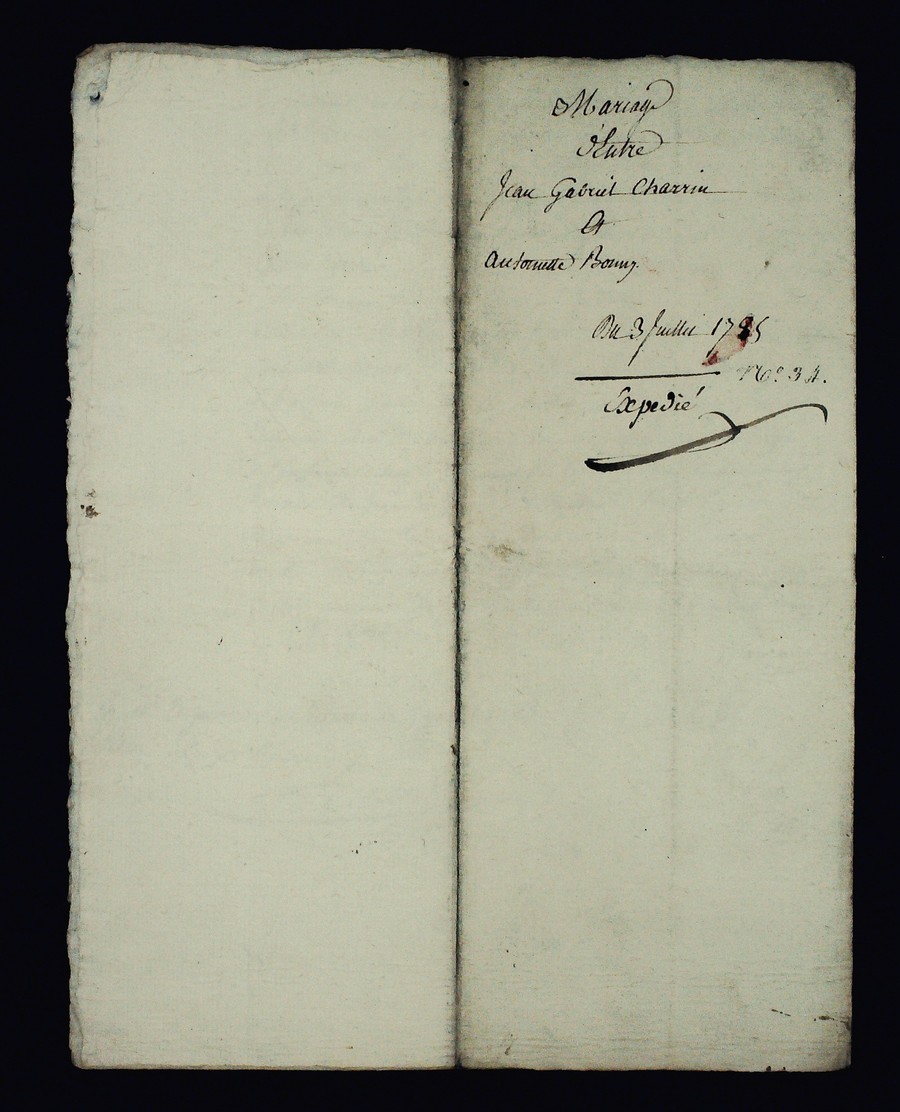 Mariage
d'Entre
Jean Gabriel Charrin
Et
Antoinette Bonny
Du 3 Juillet 1785
N.º 34.
Expedié